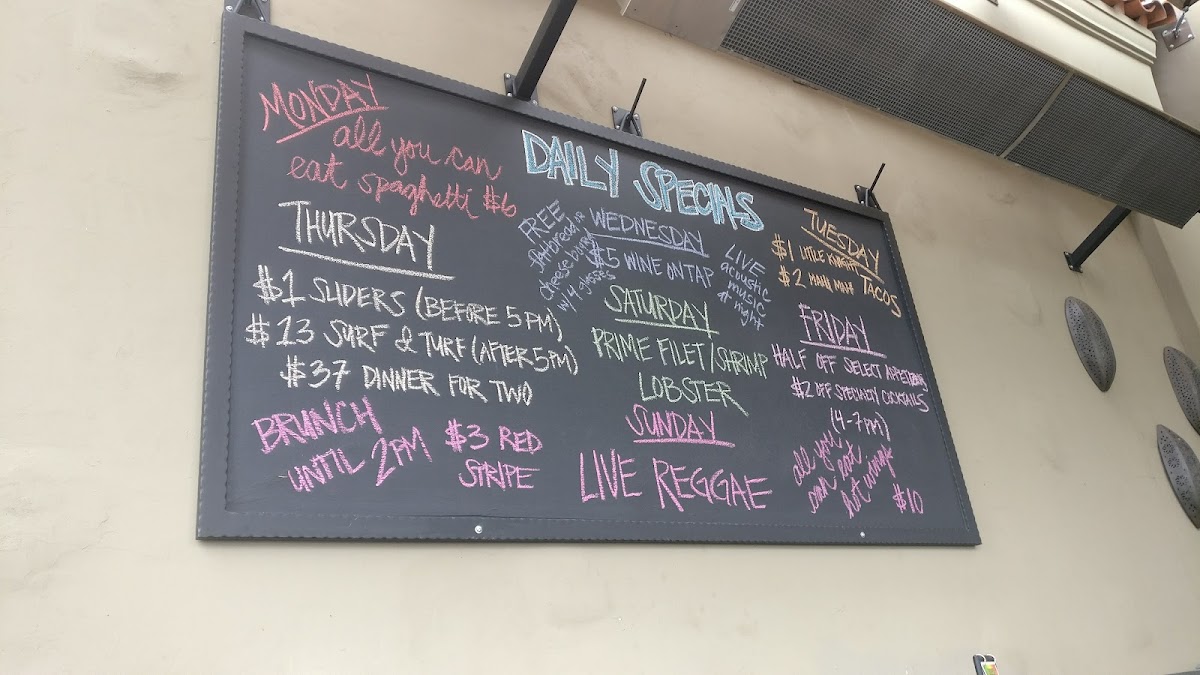 DAILY SPECIALS
MONDAY
all you can
eat spaghetti $6
THURSDAY
$1 SLIDERS (BEFORE 5PM)
$13 SURF & TURF (AFTER 5PM)
$37 DINNER FOR TWO
BRUNCH
UNTIL 2PM
$3 RED
STRIPE
FREE
flatbread or
cheese board
w/ 4 glasses
WEDNESDAY
$5 WINE ON TAP
LIVE
acoustic
music
@ night
SATURDAY
PRIME FILET/SHRIMP
LOBSTER
SUNDAY
LIVE REGGAE
TUESDAY
$1 LITTLE KNIGHT
$2 MAHI MAHI TACOS
FRIDAY
HALF OFF SELECT APPETIZERS
$2 OFF SPECIALTY COCKTAILS
(4-7PM)
all you
can eat
hot wings
$10